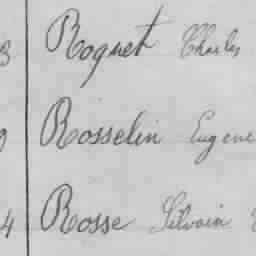 3 Roquet Charles
9 Rosselin Eugene
4 Rosse Silvain